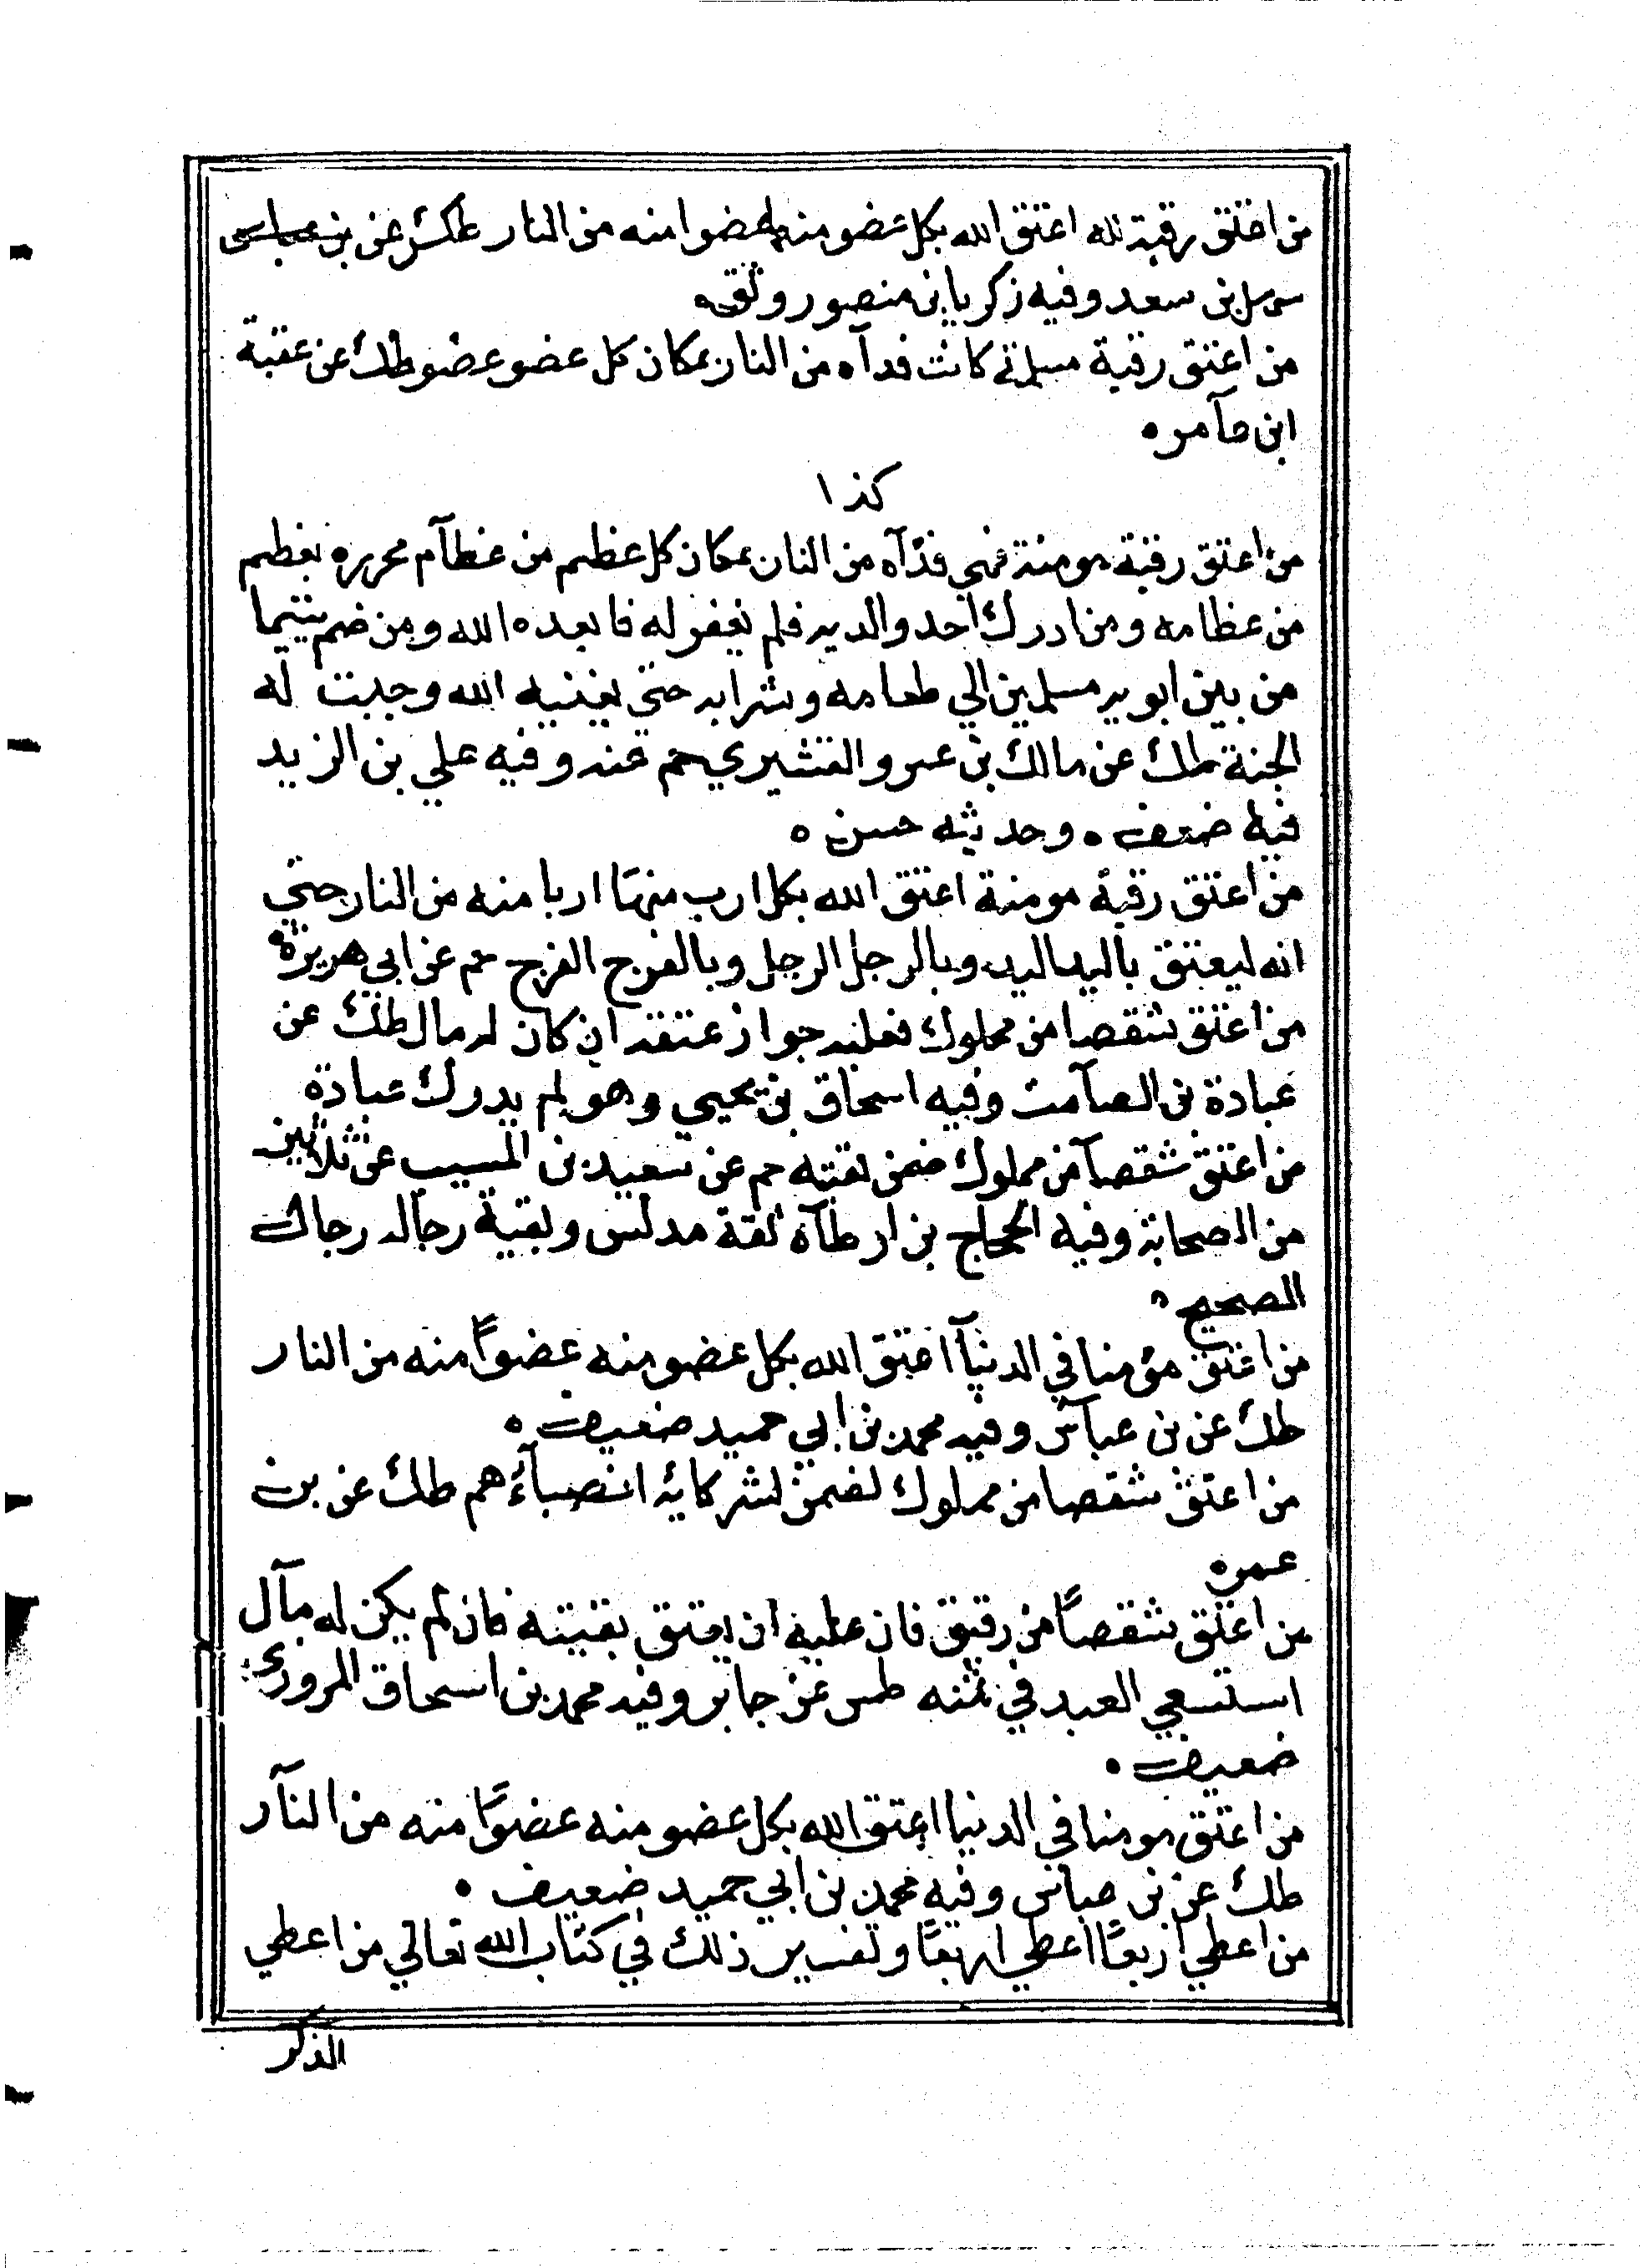 من اعتق رقبة لله اعتق الله بكل عضو منها عضوا منه من النار طك عن بن عباس
سهل بن سعد وفيه زكريا بن منصور وثق ه
من اعتق رقبة مسلمة كانت فدآه من النار بمكان كل عضو عضو طك عن عقبة
ابن عآمر ه
كذا
من اعتق رقبة مومنة فهي فدآه من النار بمكان كل عظم من عظآم محرره بعظم
من عظامه ومن ادرك احد والديه فلم يغفر له فابعده الله ومن ضم يتيما
من بين ابويه مسلمين الي طعامه وشرابه حتي يغنيه الله وجبت له
الجنة طك عن مالك بن عمرو القشيري حم عنه وفيه علي بن الزيد
فيه ضعف ه وحديثه حسن ه
من اعتق رقبة مومنة اعتق الله بكل ارب منها اربا منه من النار حتي
انه ليعتق باليد اليد وبالرجل الرجل وبالفرج الفرج حم عن ابي هريرة
من اعتق شقصا من مملوك فعليه جواز عتقه ان كان له مال طك عن
عبادة بن الصآمت وفيه اسحاق بن يحيي وهو لم يدرك عبادة
من اعتق شقصآ من مملوك ضمن بقيته حم عن سعيد بن المسيب عن ثلاثين
من الصحابة وفيه الحجاج بن ارطآة ثقة مدلس وبقية رجاله رجال
الصحيح ه
من اعتق مؤمنا في الدنيآ اعتق الله بكل عضو منه عضوًا منه من النار
طك عن بن عباس وفيه محمد بن ابي حميد ضعيف ه
من اعتق شقصا من مملوك لضمن لشركايه انصبآءهم طك عن بن
عمر ه
من اعتق شقصًا من رقيق فان عليه ان يعتق بقيته فان لم يكن له مآل
استسعي العبد في ثمنه طس عن جابر وفيه محمد بن اسحاق المروزي
ضعيف ه
من اعتق مومنا في الدنيا اعتق الله بكل عضو منه عضوًا منه من النآر
طك عن بن عباس وفيه محمد بن ابي حميد ضعيف ه
من اعطي اربعًا اعطي اربعًا وتفسير ذلك في كتاب الله تعالي من اعطي
الذكر